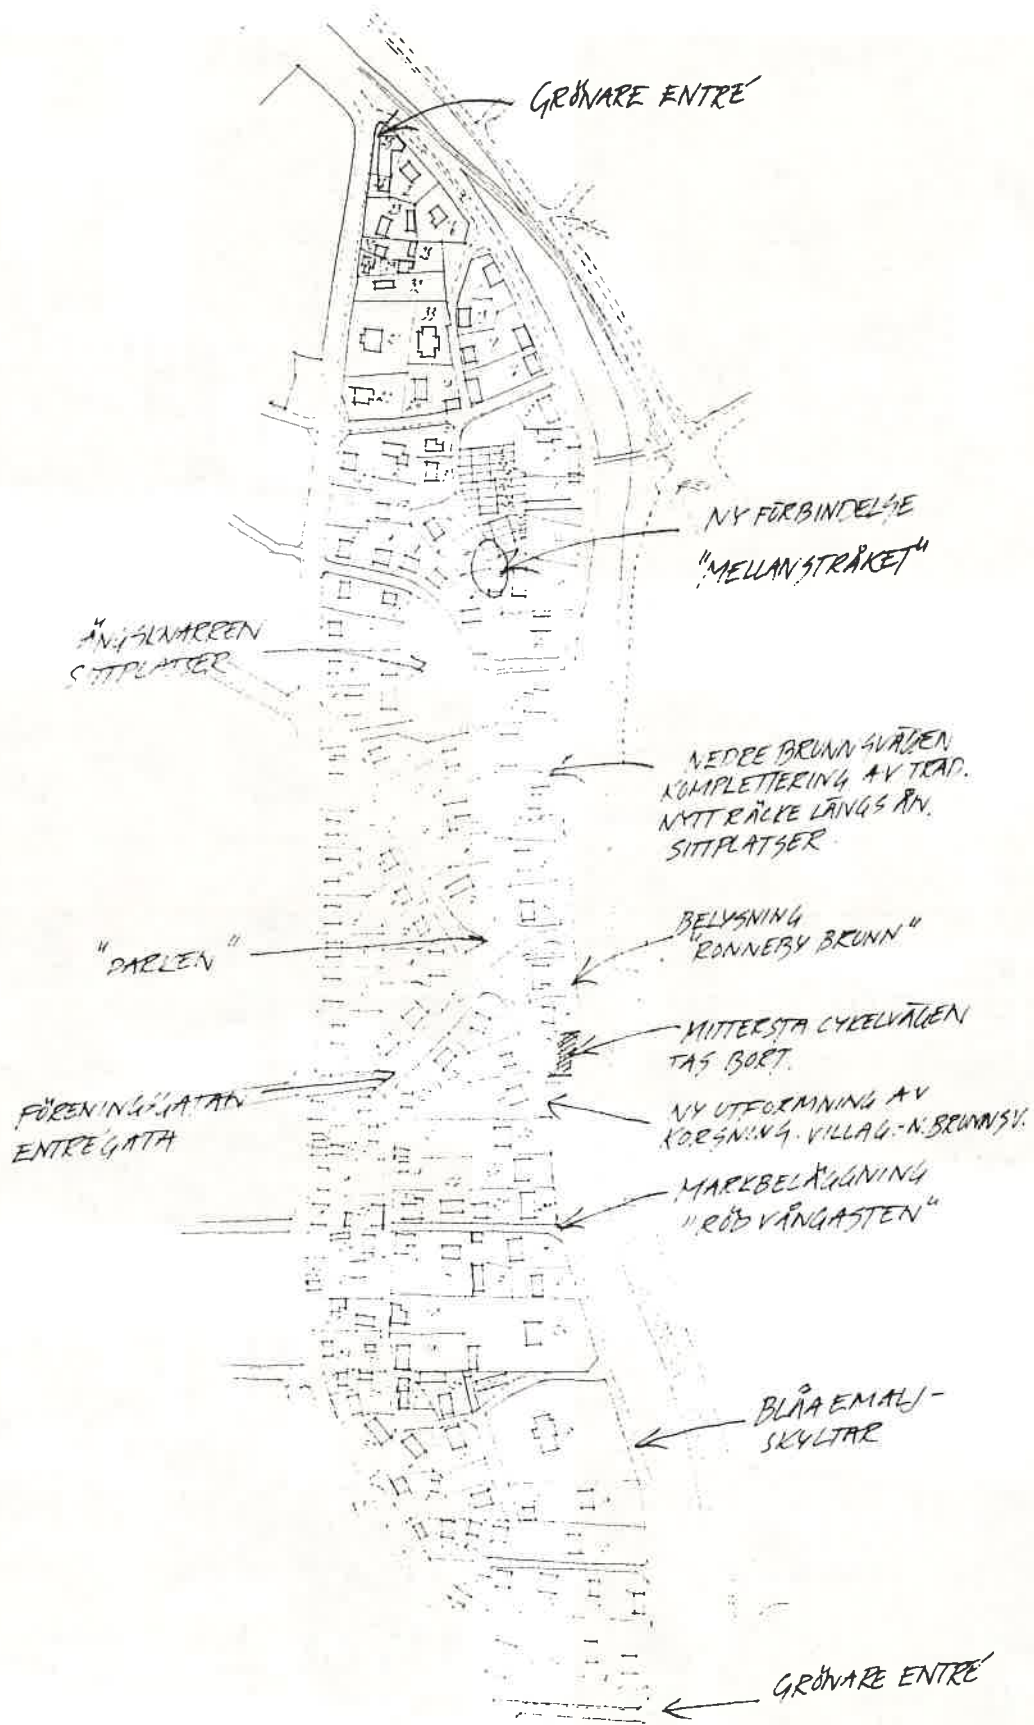 GRÖNARE ENTRÉ
33
NY FÖRBINDELSE
"MELLANSTRÅKET"
ÄNGSKNARREN
SITTPLATSER
NEDRE BRUNNSVÄGEN
KOMPLETTERING AV TRÄD.
NYTT RÄCKE LÄNGS ÅN.
SITTPLATSER
BELYSNING
"RONNEBY BRUNN"
"PARLEN"
MITTERSTA CYKELVÄGEN
TAS BORT.
FÖRENINGSGATAN
ENTRÉGATA
NY UTFORMNING AV
KORSNING. VILLAG.-N.BRUNNSV.
MARKBELÄGGNING
"RÖD VÅNGASTEN"
BLÅA EMALJ-
SKYLTAR
GRÖNARE ENTRÉ